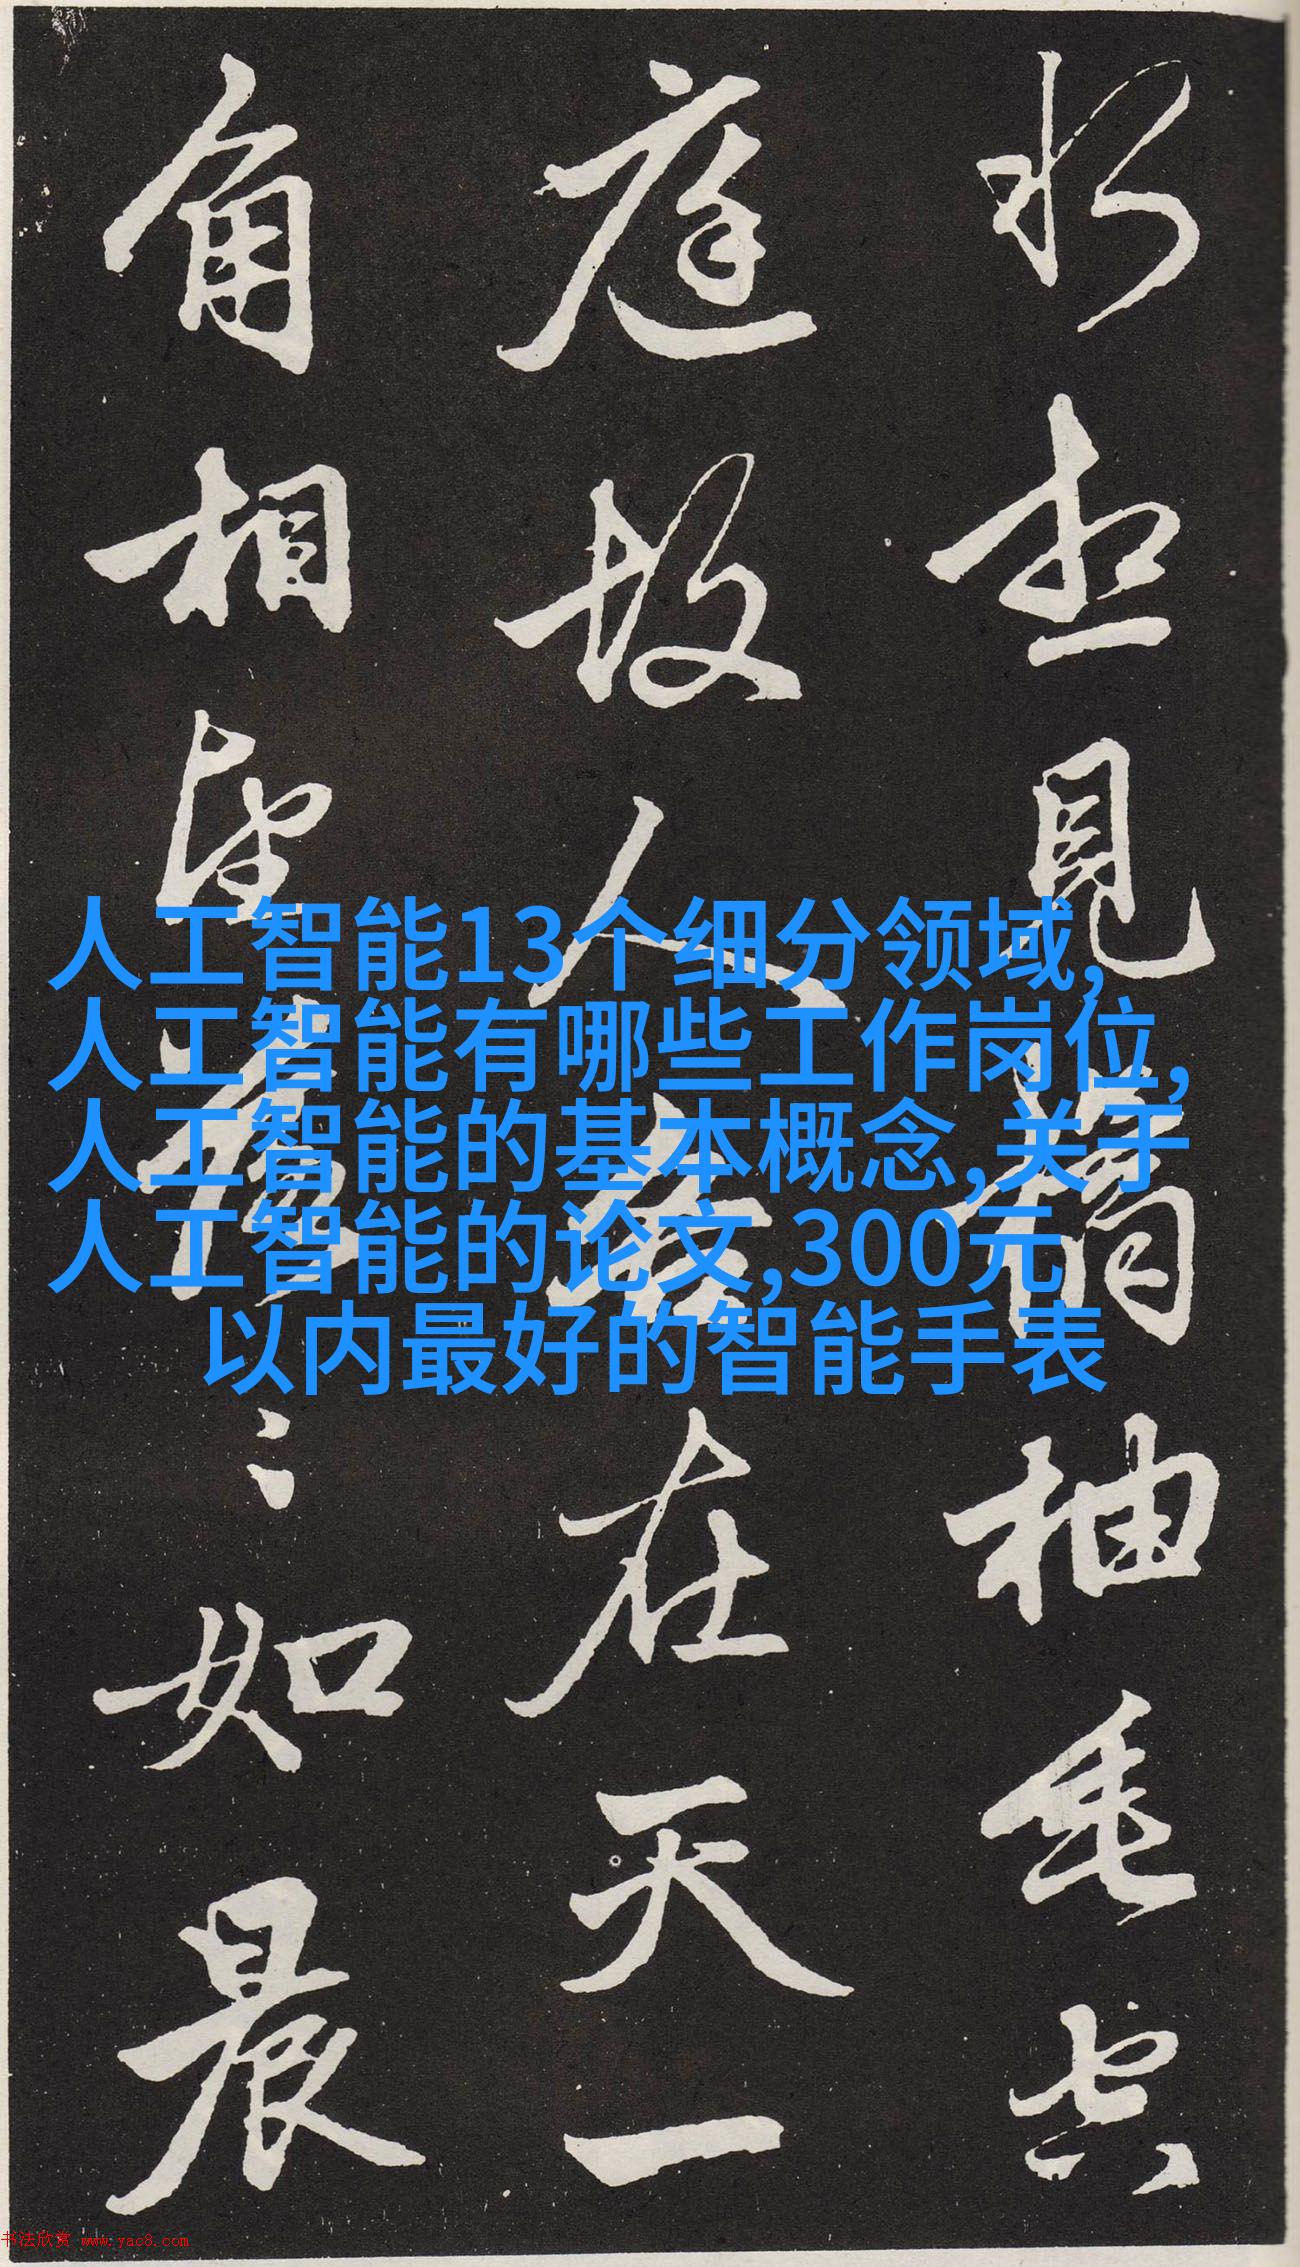 想見橘柚垂空
庭故人各在天一
角相望落〻如晨
人工智能13个细分领域,
人工智能有哪些工作岗位,
人工智能的基本概念,关于
人工智能的论文,300元
以内最好的智能手表
书法欣赏 www.yac8.com